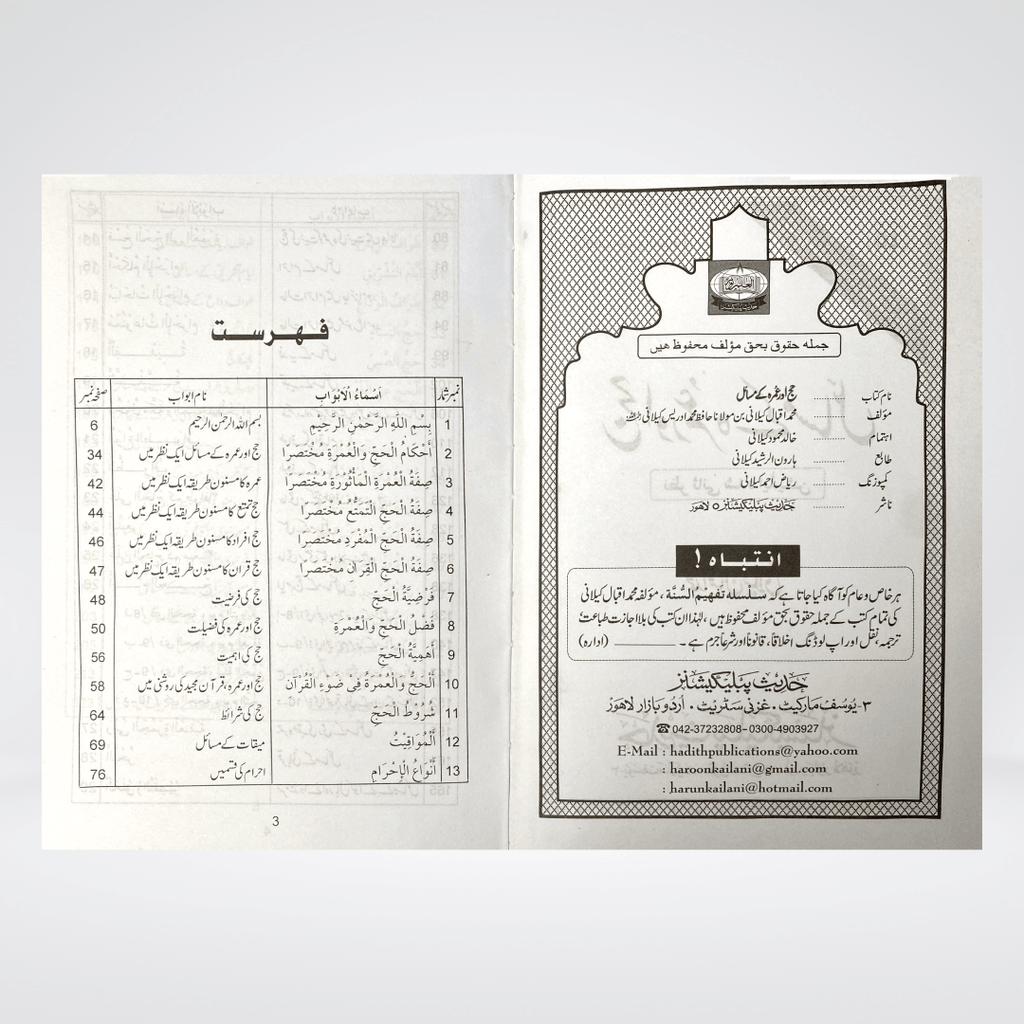 جملہ حقوق بحق مؤلف محفوظ ھیں
نام کتاب ............ حج اور عمرہ کے مسائل
مؤلف ............ محمد اقبال کیلانی بن مولانا حافظ محمد ادریس کیلانی رحمہ اللہ
اہتمام ............ خالد محمود کیلانی
طابع ............ ہارون الرشید کیلانی
کمپوزنگ ............ ریاض احمد کیلانی
ناشر ............ حدیث پبلیکیشنز، لاہور
انتباہ !
ہر خاص و عام کو آگاہ کیا جاتا ہے کہ سلسلہ تَفْهِيْمُ السُّنَّة ، مؤلفہ محمد اقبال کیلانی
کی تمام کتب کے جملہ حقوق بحق مؤلف محفوظ ہیں، لہٰذا ان کتب کی بلا اجازت طباعت،
ترجمہ، نقل اور اپ لوڈنگ اخلاقاً، قانوناً اور شرعاً جرم ہے ۔ ________ (ادارہ)
حدیث پبلیکیشنز
۳- یُوسف مارکیٹ ۰ غزنی سٹریٹ ۰ اُردو بازار لاھور
☎ 042-37232808 – 0300-4903927
E-Mail : hadithpublications@yahoo.com
: haroonkailani@gmail.com
: harunkailani@hotmail.com
فہرست
نمبر شمار اَسْمَاءُ الْاَبْوَاب نام ابواب صفحہ نمبر
1 بِسْمِ اللّٰهِ الرَّحْمٰنِ الرَّحِيْمِ بسم اللہ الرحمٰن الرحیم 6
2 أَحْكَامُ الْحَجِّ وَالْعُمْرَةِ مُخْتَصَرًا حج اور عمرہ کے مسائل ایک نظر میں 34
3 صِفَةُ الْعُمْرَةِ الْمَأْثُوْرَةِ مُخْتَصَرًا عمرہ کا مسنون طریقہ ایک نظر میں 42
4 صِفَةُ الْحَجِّ التَّمَتُّعِ مُخْتَصَرًا حج تمتع کا مسنون طریقہ ایک نظر میں 44
5 صِفَةُ الْحَجِّ الْمُفْرَدِ مُخْتَصَرًا حج افراد کا مسنون طریقہ ایک نظر میں 46
6 صِفَةُ الْحَجِّ الْقِرَانِ مُخْتَصَرًا حج قران کا مسنون طریقہ ایک نظر میں 47
7 فَرْضِيَّةُ الْحَجِّ حج کی فرضیت 48
8 فَضْلُ الْحَجِّ وَالْعُمْرَةِ حج اور عمرہ کی فضیلت 50
9 أَهَمِيَّةُ الْحَجِّ حج کی اہمیت 56
10 اَلْحَجُّ وَالْعُمْرَةُ فِيْ ضَوْءِ الْقُرْآنِ حج اور عمرہ، قرآن مجید کی روشنی میں 58
11 شُرُوْطُ الْحَجِّ حج کی شرائط 64
12 اَلْمَوَاقِيْتُ میقات کے مسائل 69
13 أَنْوَاعُ الْإِحْرَامِ احرام کی قسمیں 76
3